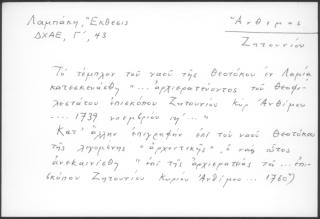 Λαμπάκη, Ἔκθεσις
ΔΧΑΕ, Γ´, 43
Ἄνθιμος
Ζητουνίου
Τὸ τέμπλον τοῦ ναοῦ τῆς Θεοτόκου ἐν Λαμίᾳ
κατεσκευάσθη "... ἀρχιερατεύοντος τοῦ Θεοφι-
λεστάτου ἐπισκόπου Ζητουνίου Κὺρ Ἀνθίμου
.... 1739 νοεμβρίου
Κατ' ἄλλην ἐπιγραφὴν ἐπὶ τοῦ ναοῦ Θεοτόκου
τῆς λεγομένης "ἀρχοντικῆς", ὁ ναὸς οὗτος
ἀνεκαινίσθη "ἐπὶ τῆς ἀρχιερατείας τοῦ ... ἐπι-
σκόπου Ζητουνίου Κυρίου Ἀνθίμου ... 1760")